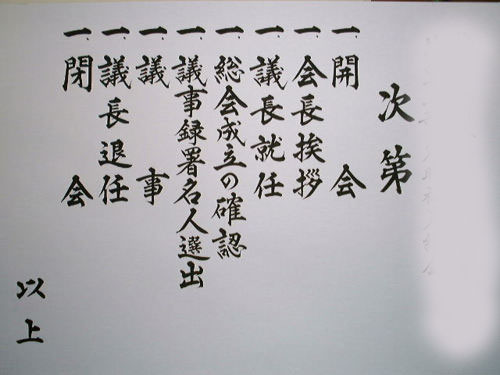 次第
一、開会
一、会長挨拶
一、議長就任
一、総会成立の確認
一、議事録署名人選出
一、議事
一、議長退任
一、閉会
以上